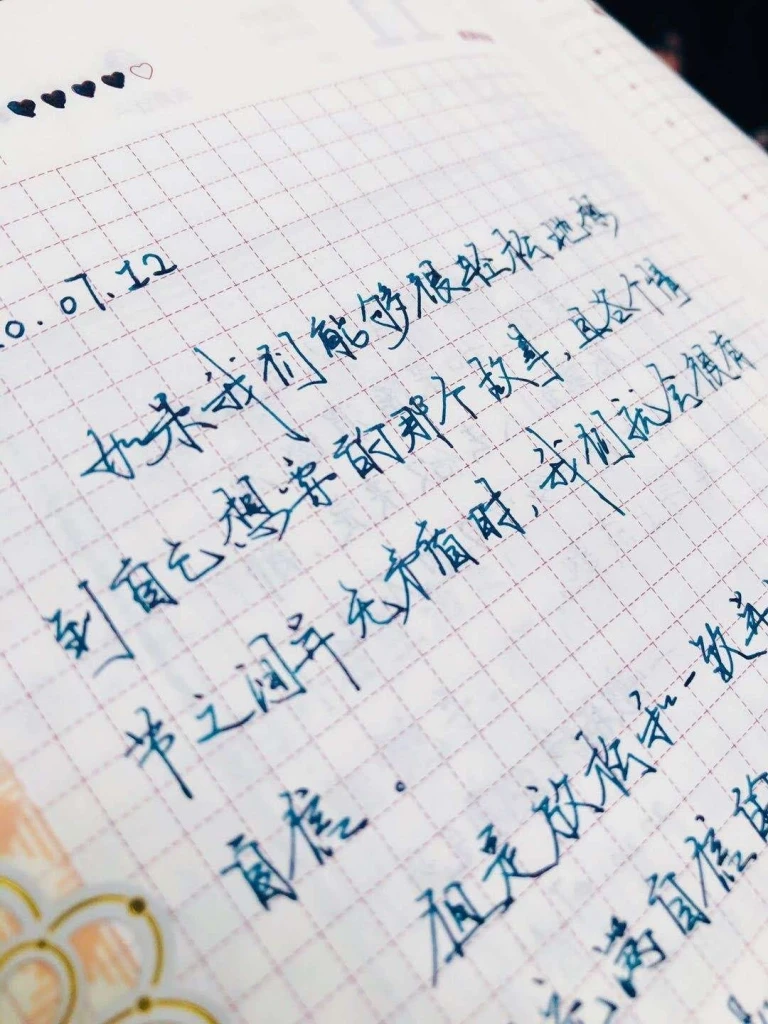 0.07.12
如果我们能够很轻松地想
到自己想要的那个故事，且各个情
节之间并无矛盾时，我们就会很有
自信．
但是放松和一致并
充满自信的